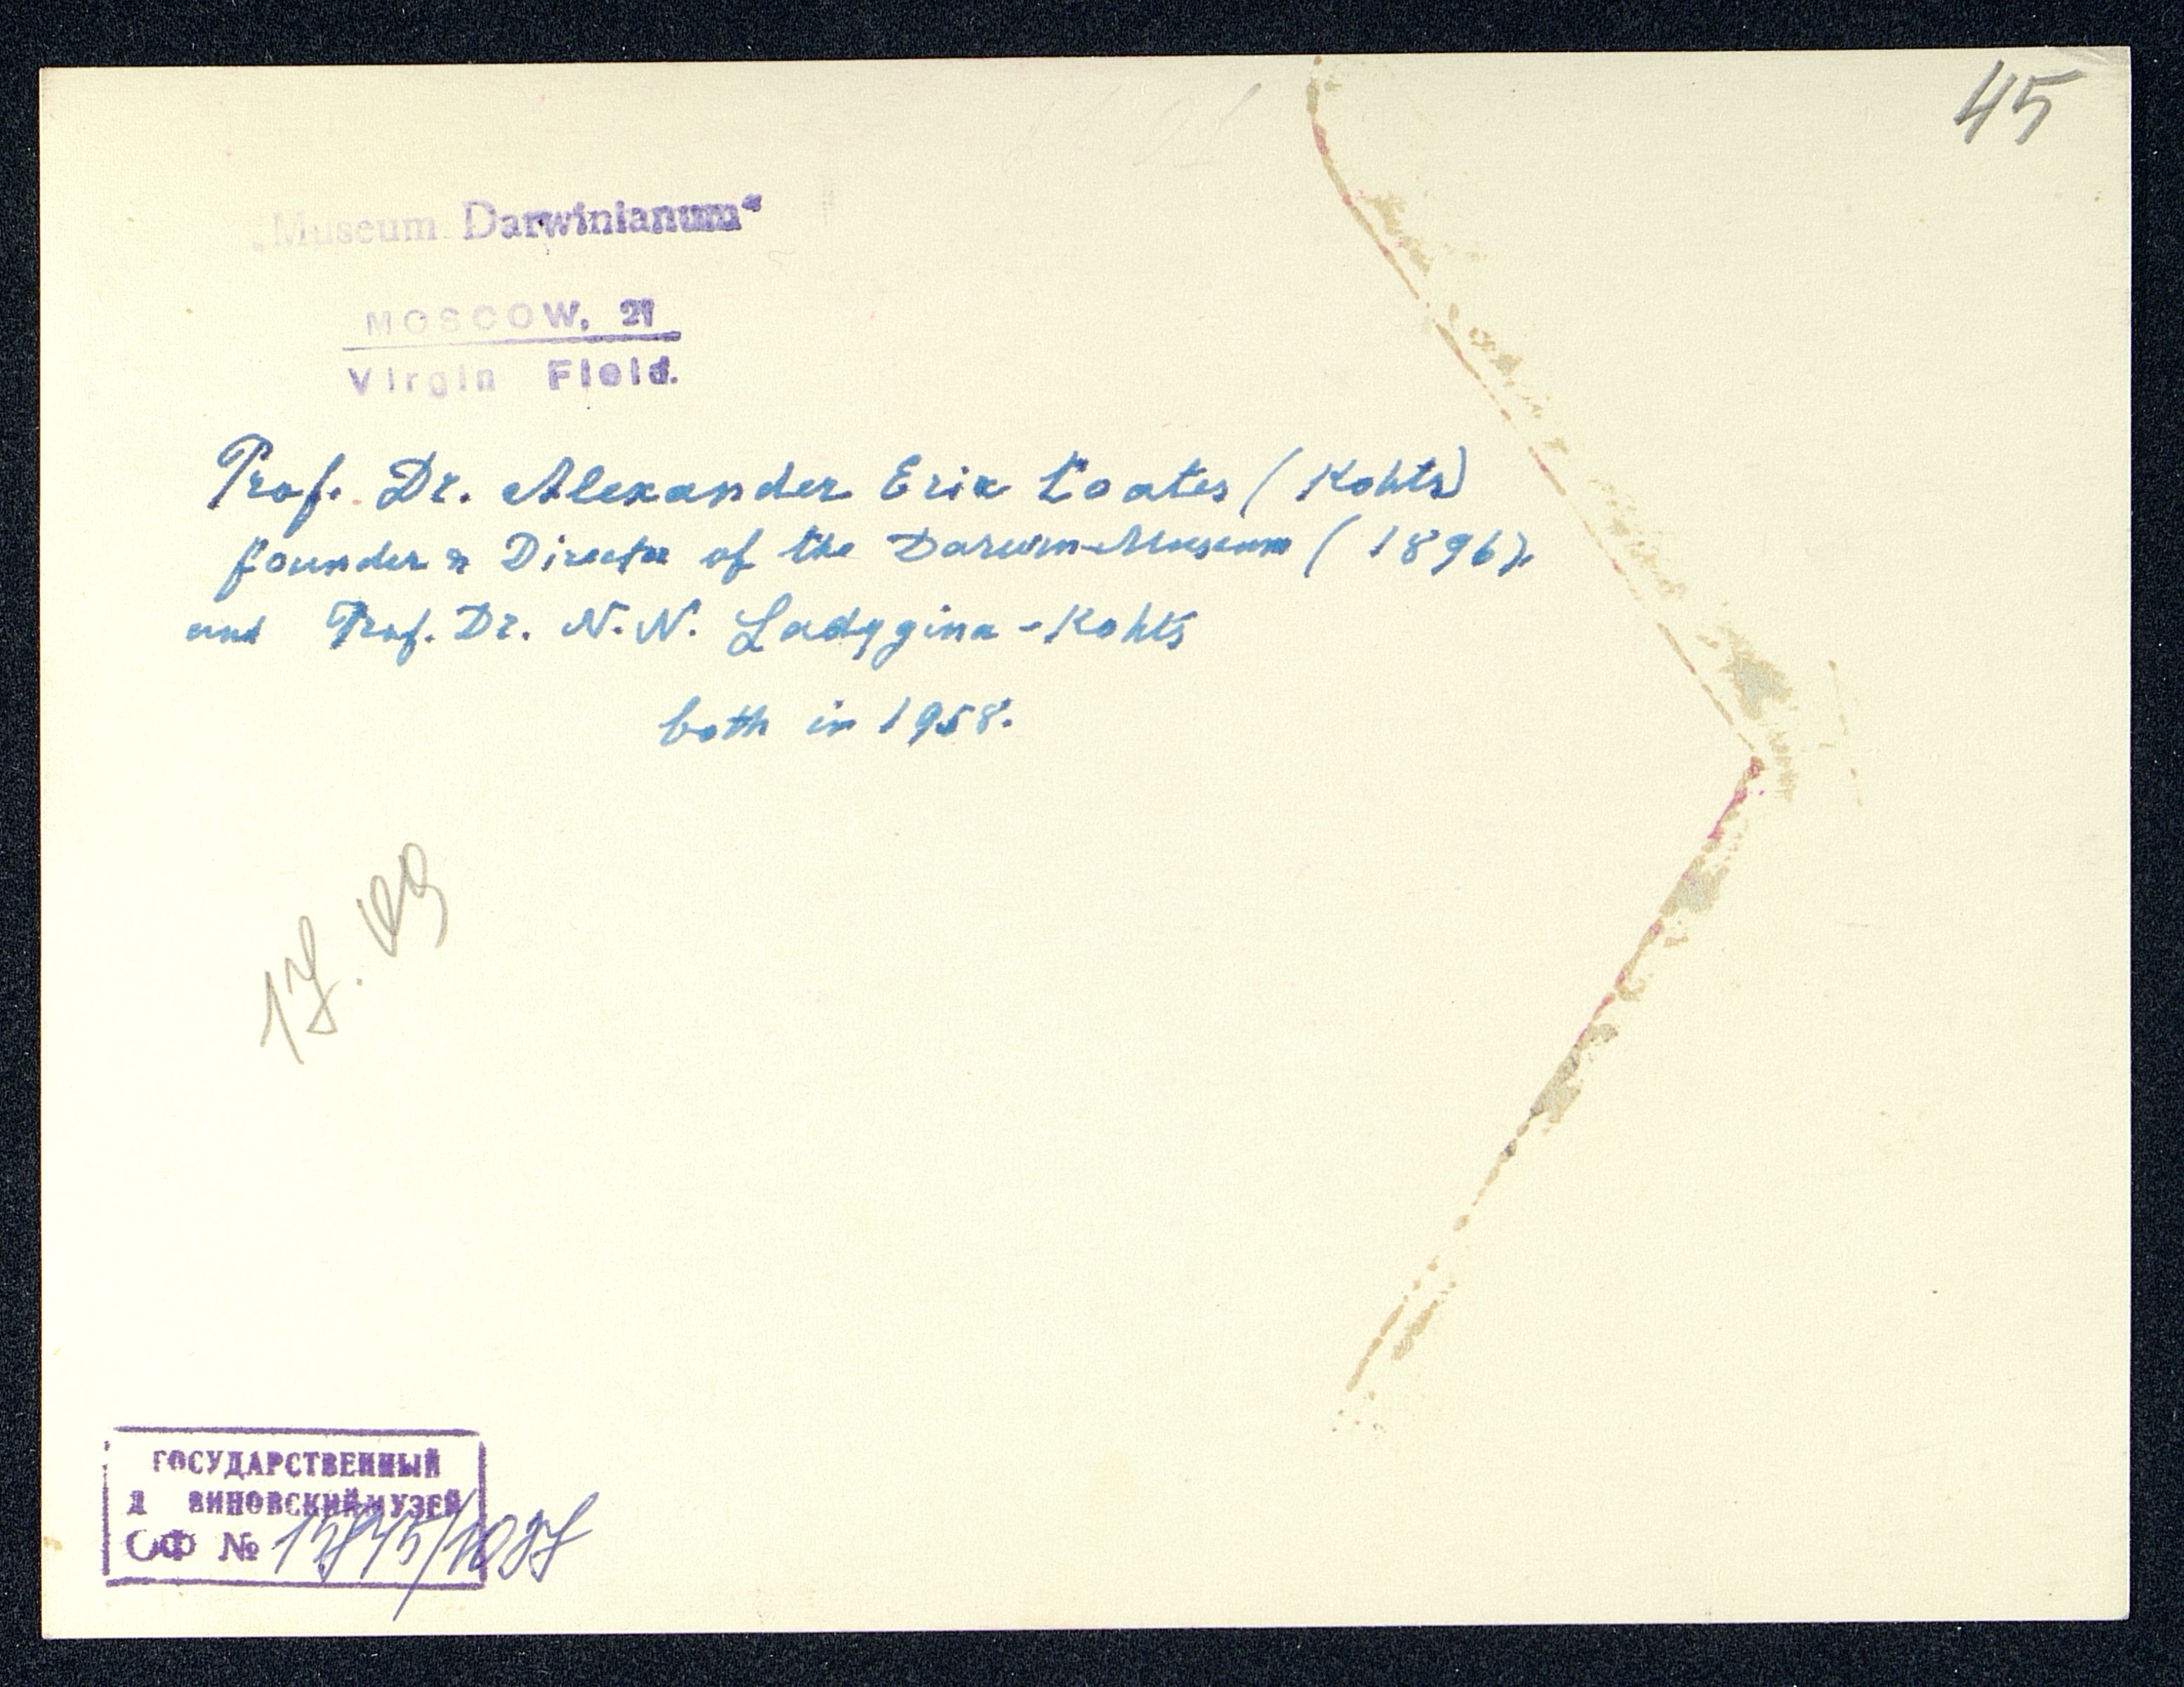 45
„Museum Darwinianum“
MOSCOW, 21
Virgin Field.
Prof. Dr. Alexander Erix Coates (Kohts)
founder & Director of the Darwin-Museum (1896),
and Prof. Dr. N. N. Ladygina-Kohts
both in 1958.
ГОСУДАРСТВЕННЫЙ
Д ВИНОВСКИЙ МУЗЕЙ
ОФ №